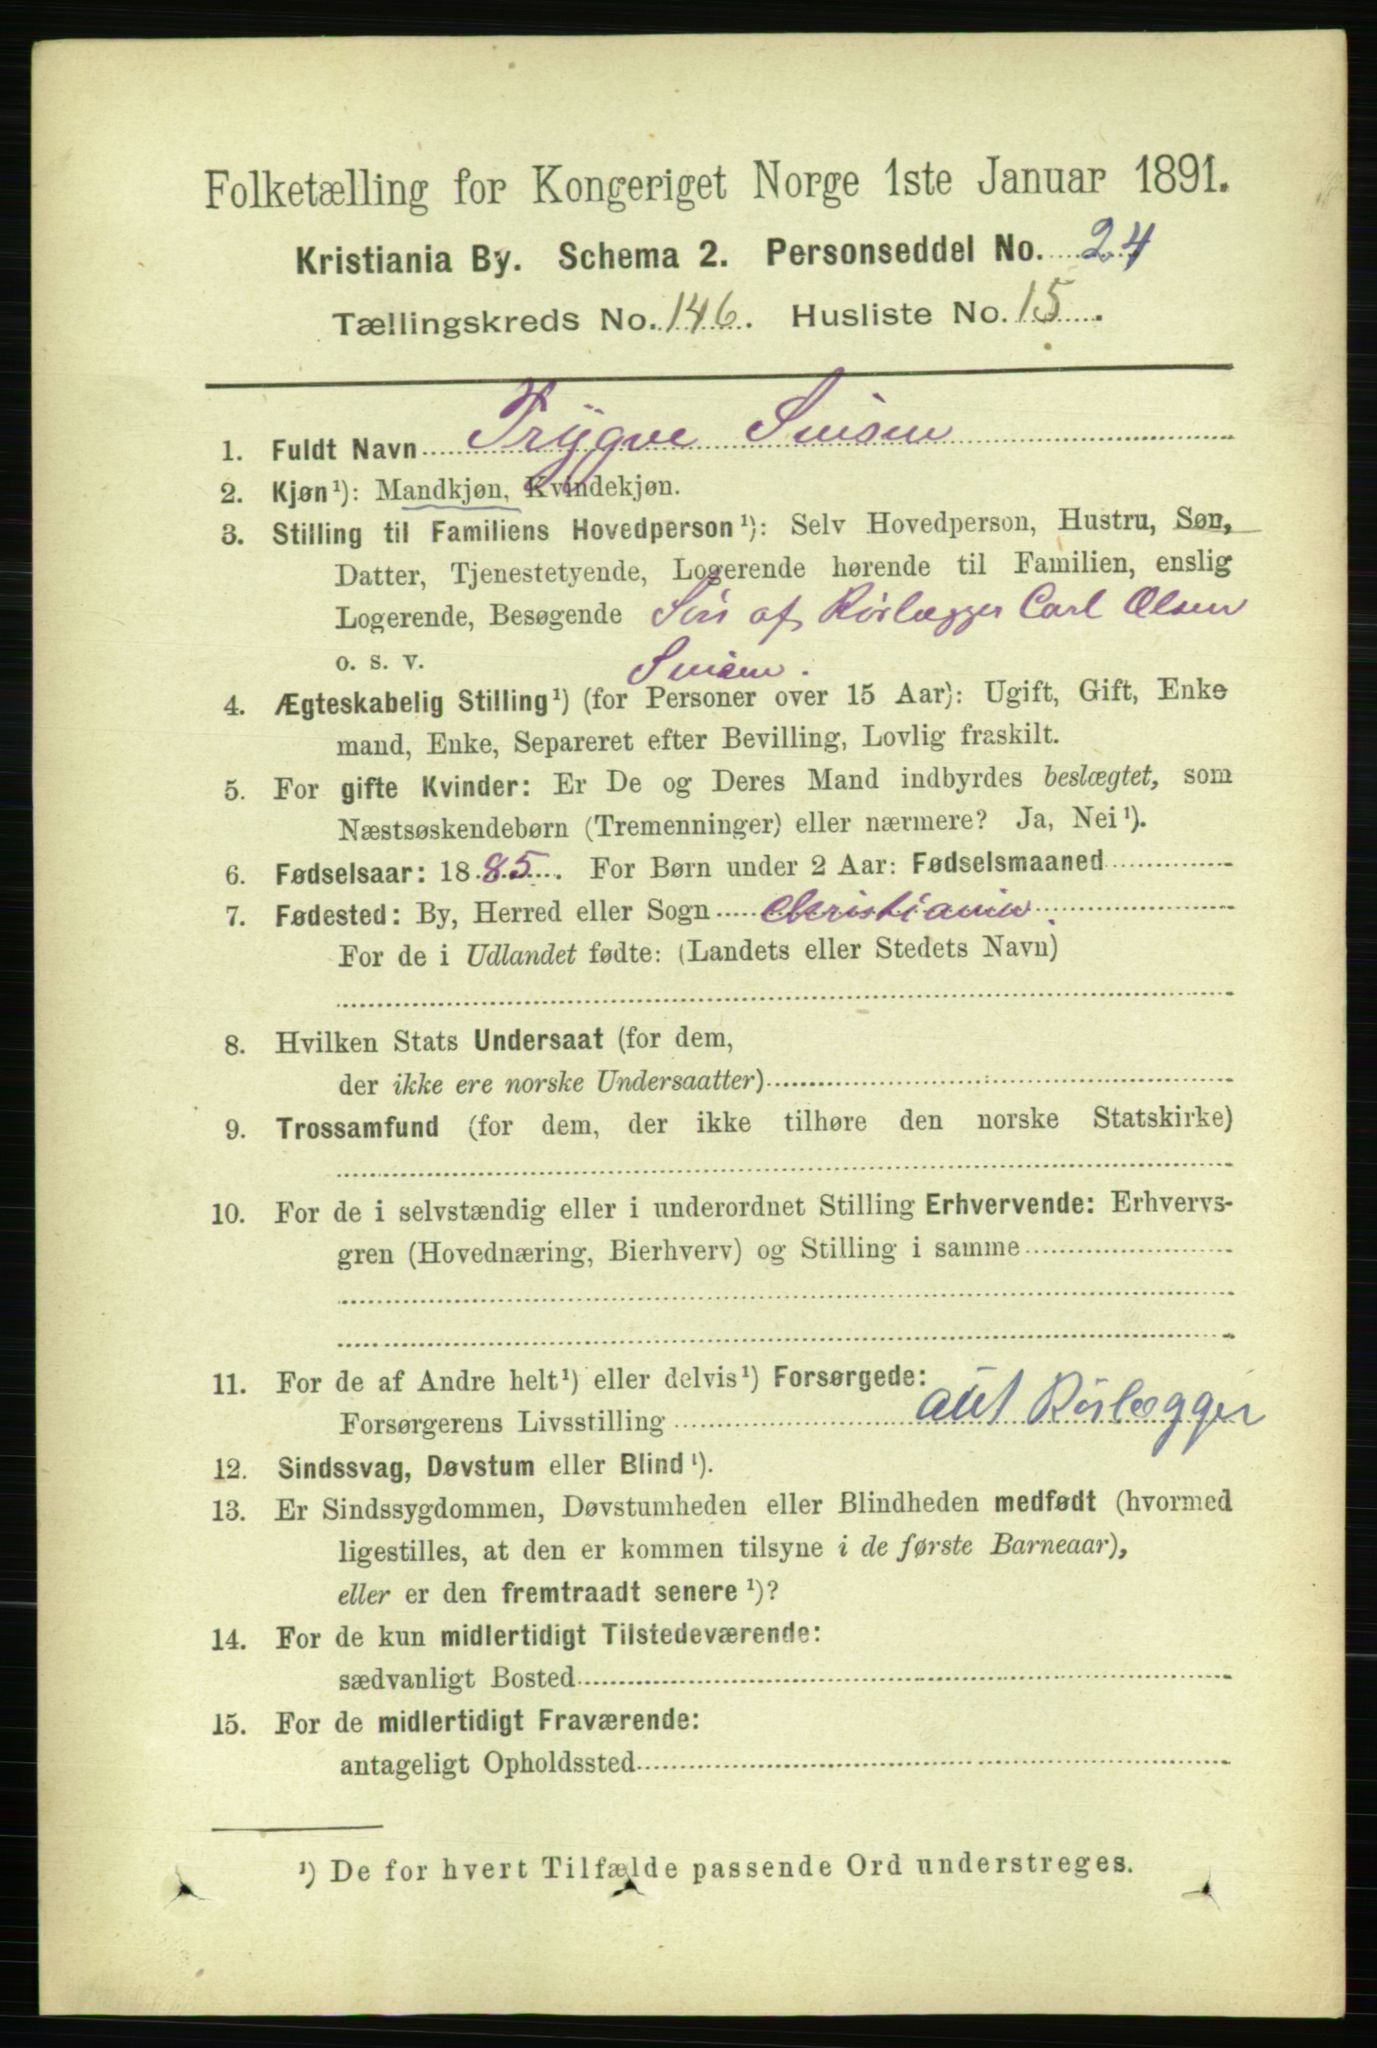 Folketælling for Kongeriget Norge 1ste Januar 1891.
Kristiania By. Schema 2. Personseddel No. 24
Tællingskreds No. 146. Husliste No. 15.
1. Fuldt Navn Trygve Sinsen
2. Kjøn¹): Mandkjøn, Kvindekjøn.
3. Stilling til Familiens Hovedperson¹): Selv Hovedperson, Hustru, Søn,
Datter, Tjenestetyende, Logerende hørende til Familien, enslig
Logerende, Besøgende Søn af Rørlægger Carl Olsen
o. s. v. Sinsen.
4. Ægteskabelig Stilling¹) (for Personer over 15 Aar): Ugift, Gift, Enke
mand, Enke, Separeret efter Bevilling, Lovlig fraskilt.
5. For gifte Kvinder: Er De og Deres Mand indbyrdes beslægtet, som
Næstsøskendebørn (Tremenninger) eller nærmere? Ja, Nei¹).
6. Fødselsaar: 1885. For Børn under 2 Aar: Fødselsmaaned
7. Fødested: By, Herred eller Sogn Christiania.
For de i Udlandet fødte: (Landets eller Stedets Navn)
8. Hvilken Stats Undersaat (for dem,
der ikke ere norske Undersaatter)
9. Trossamfund (for dem, der ikke tilhøre den norske Statskirke)
10. For de i selvstændig eller i underordnet Stilling Erhvervende: Erhvervs-
gren (Hovednæring, Bierhverv) og Stilling i samme
11. For de af Andre helt¹) eller delvis¹) Forsørgede:
Forsørgerens Livsstilling Rørlægger
12. Sindssvag, Døvstum eller Blind¹).
13. Er Sindssygdommen, Døvstumheden eller Blindheden medfødt (hvormed
ligestilles, at den er kommen tilsyne i de første Barneaar),
eller er den fremtraadt senere¹)?
14. For de kun midlertidigt Tilstedeværende:
sædvanligt Bosted
15. For de midlertidigt Fraværende:
antageligt Opholdssted
¹) De for hvert Tilfælde passende Ord understreges.